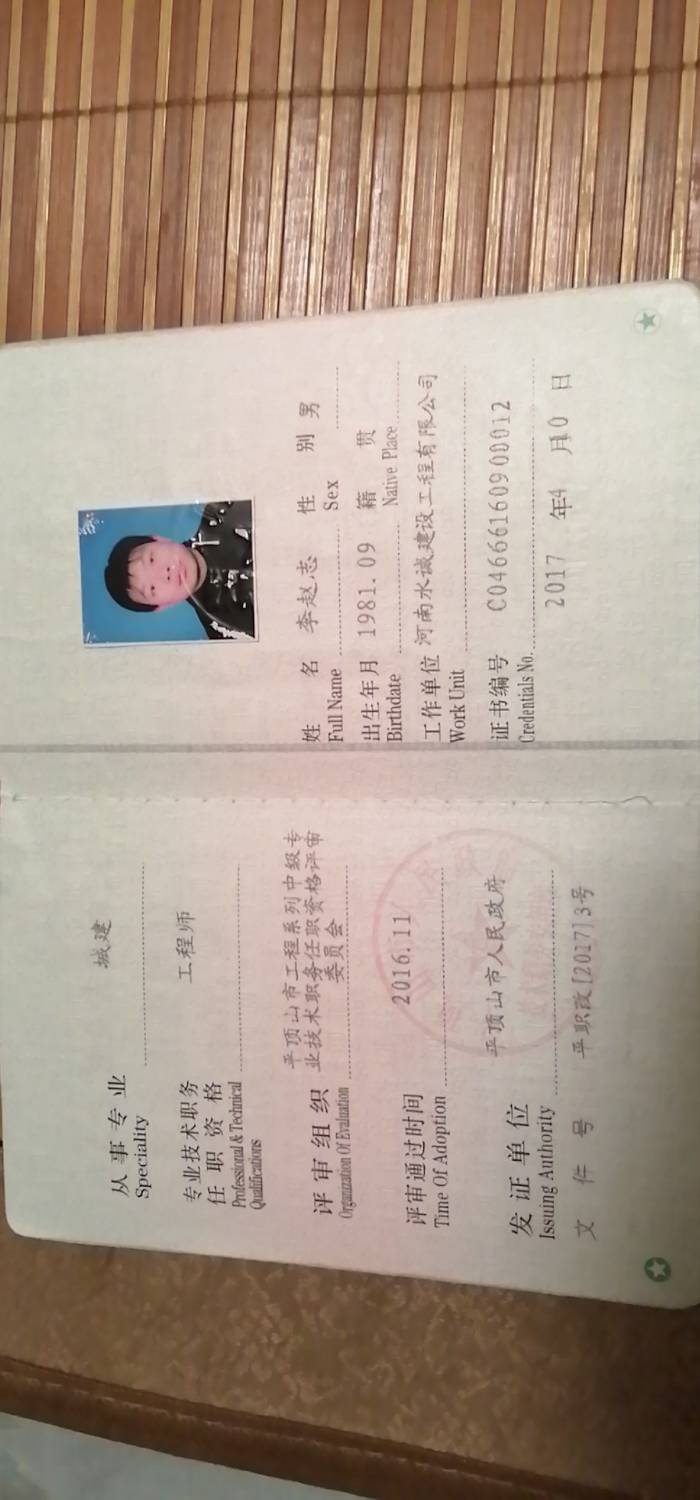 从事专业 城建
Speciality
专业技术职务 工程师
任职资格
Professional & Technical
Qualifications
平顶山市工程系列中级专
评审组织 业技术职务任职资格评审
Organization Of Evaluation 委员会
评审通过时间 2016.11
Time Of Adoption
发证单位 平顶山市人民政府
Issuing Authority
文件号 平职改[2017]3号
姓名 李赵志 性别 男
Full Name Sex
出生年月 1981.09 籍贯
Birthdate Native Place
工作单位 河南水诚建设工程有限公司
Work Unit
证书编号 C04666160900012
Credentials No.
2017 年4 月10 日